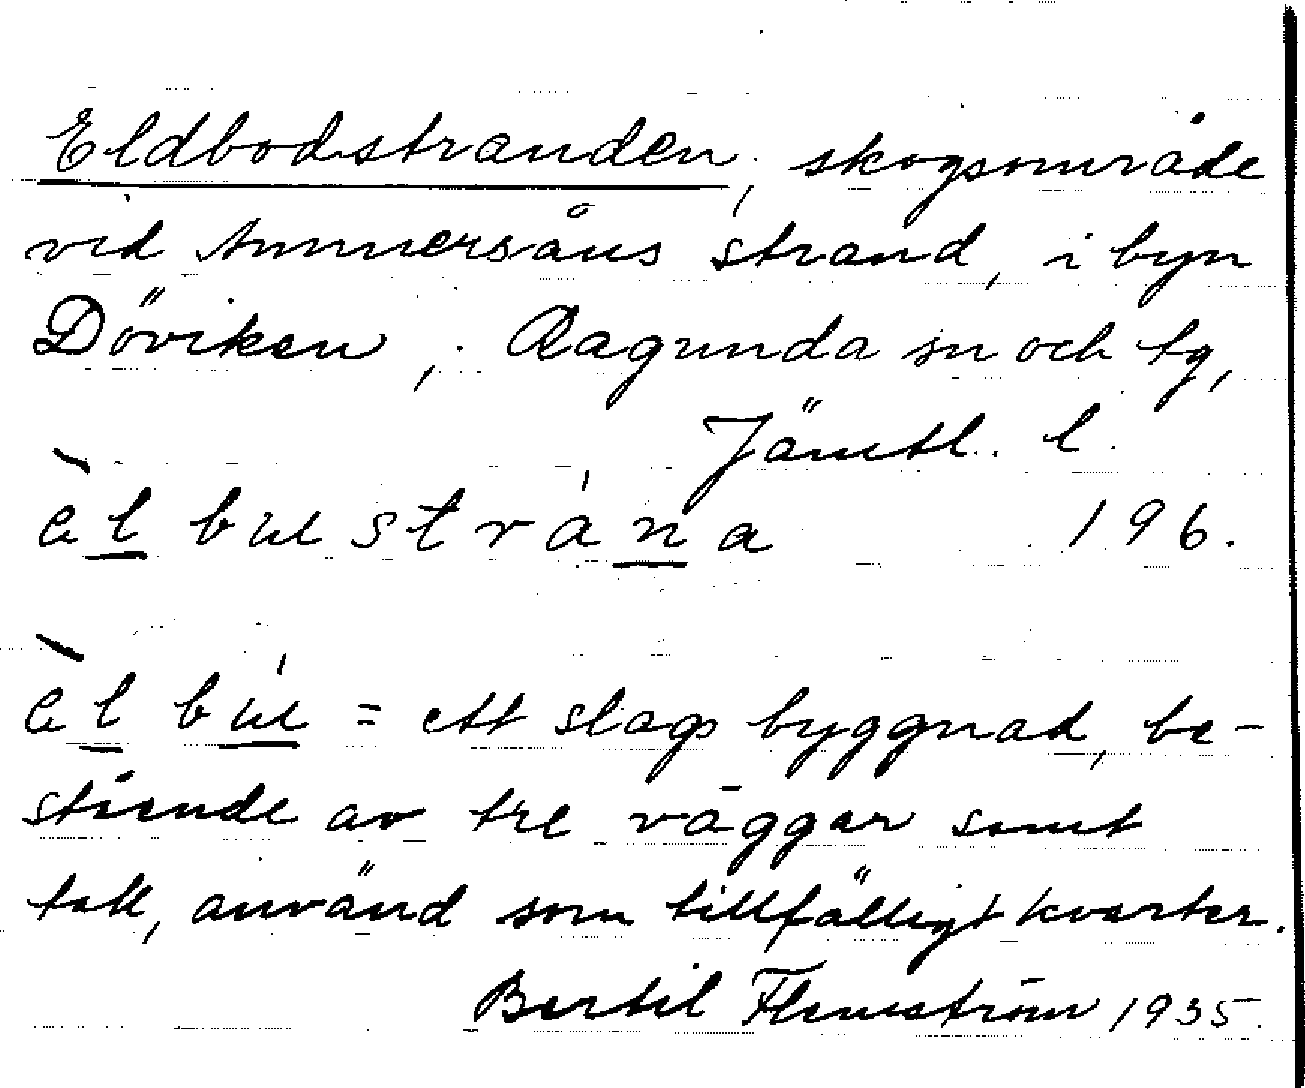 Eldbodstranden, skogsområde
vid Ammersåns strand, i byn
Döviken, Ragunda sn och tg,
Jämtl. l.
èlbustrána 196.
èlbú = ett slags byggnad, be-
stående av tre väggar samt
tak, använd som tillfälligt kvarter.
Bertil Flemström 1935.